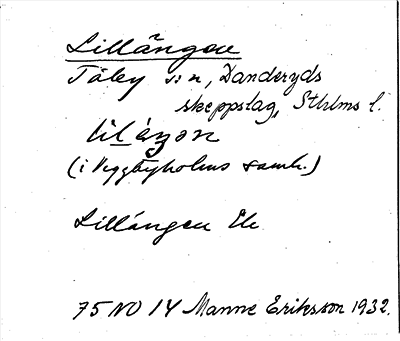 Lillängen
Täby s:n, Danderyds
skeppslag, Sthlms l.
(i Viggbyholms samh.)
Lillängen Ek
75 NO 14 Manne Eriksson 1932.